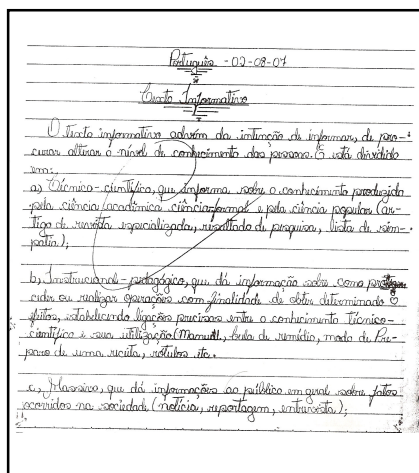 Português - 02-08-07
Texto Informativo
O texto informativo advém da intenção de informar, de pro-
curar alterar o nível de conhecimento das pessoas. E está dividido
em:
a) Técnico-científico, que informa sobre o conhecimento produzido
pela ciência (acadêmica ciência formal e pela ciência popular (ar-
tigo de revista especializada, resultado de pesquisa, lista de sim-
patia);
b) Instrucional-pedagógico, que dá informação sobre como
ceder ou realizar operações com finalidade de obter determinado
efeitos, estabelecendo ligações precisas entre o conhecimento técnico-
científico e sua utilização (Manual, bula de remédio, modo de Pre-
paro de uma receita, rótulos etc.
c) Massivo, que dá informações ao público em geral sobre fatos
ocorridos na sociedade (notícia, reportagem, entrevista);